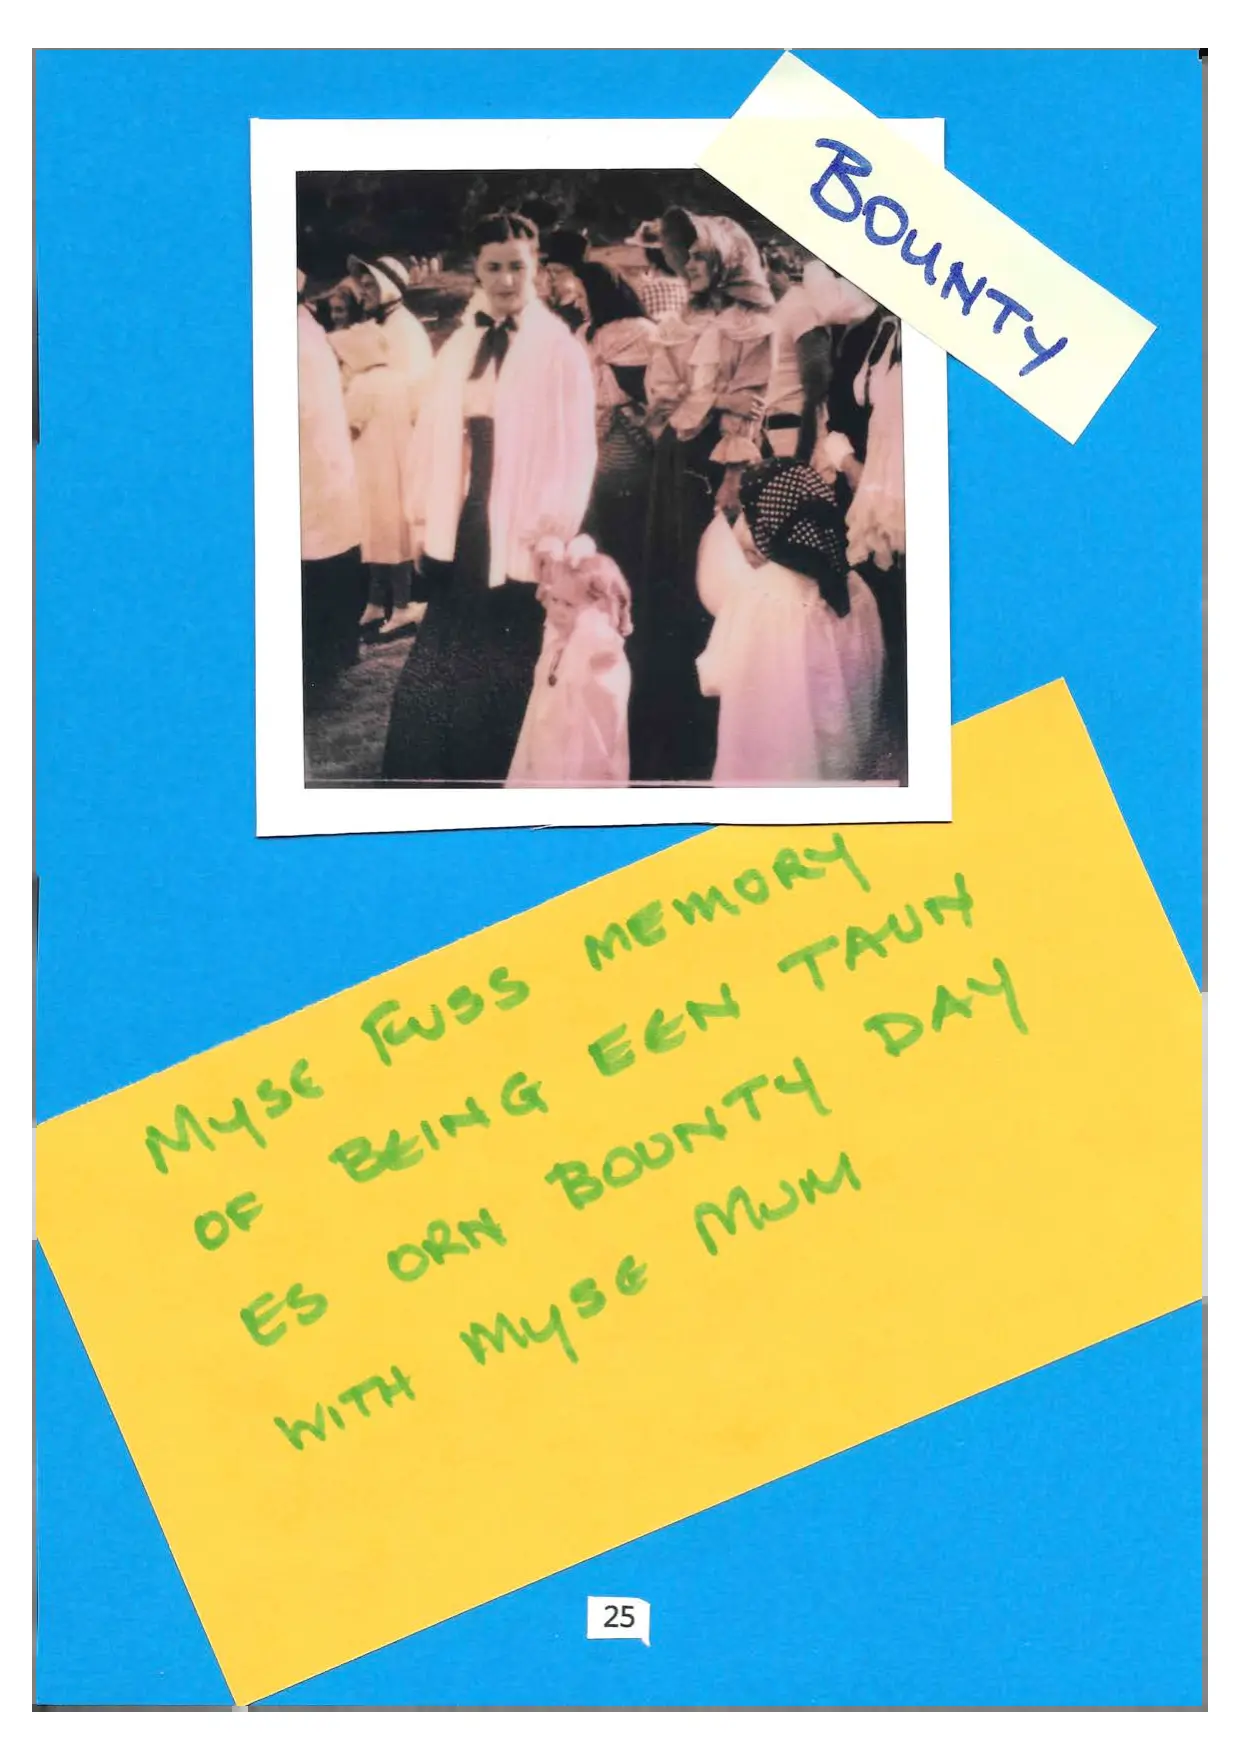 BOUNTY
MYSE FUSS MEMORY
OF BEING EEN TAUN
ES ORN BOUNTY DAY
WITH MYSE MUM
25